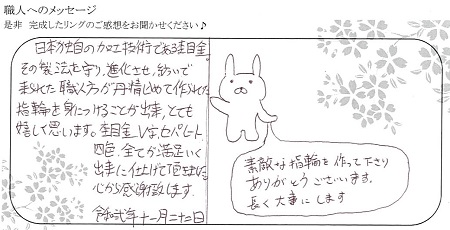 職人へのメッセージ
是非 完成したリングのご感想をお聞かせください♪
日本独自の加工技術である杢目金。
その製法を守り、進化させ、紡いで
来られた職人方が丹精込めて作られた
指輪を身につけることが出来、とても
嬉しく思います。杢目金、V字、セパレート
四色、全てが満足いく
出来に仕上げて頂きまして
心から感謝致します。
令和弐年十一月二十二日
素敵な指輪を作って下さり
ありがとうございます。
長く大事にします